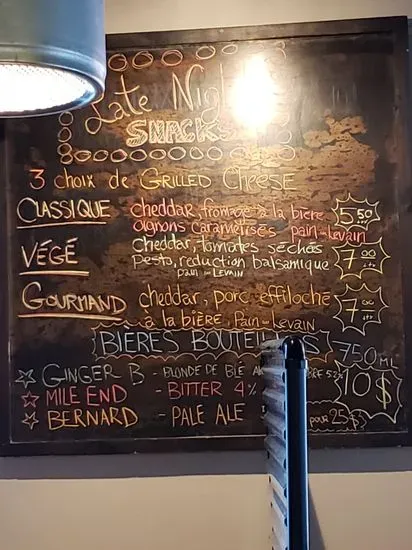 Late Night
SNACKS
3 choix de GRILLED CHEESE
CLASSIQUE cheddar, fromage à la bière, 5.50
oignons caramelisés pain-levain
VÉGÉ cheddar, tomates séchés 7.00
pesto, reduction balsamique
pain-LEVAIN
GOURMAND cheddar, porc effiloché 7.00
à la bière, Pain-Levain
BIÈRES BOUTEILLES 750ML
GINGER B - BLONDE DE BLÉ 10$
MILE END - BITTER 4%
BERNARD - PALE ALE POUR 25$